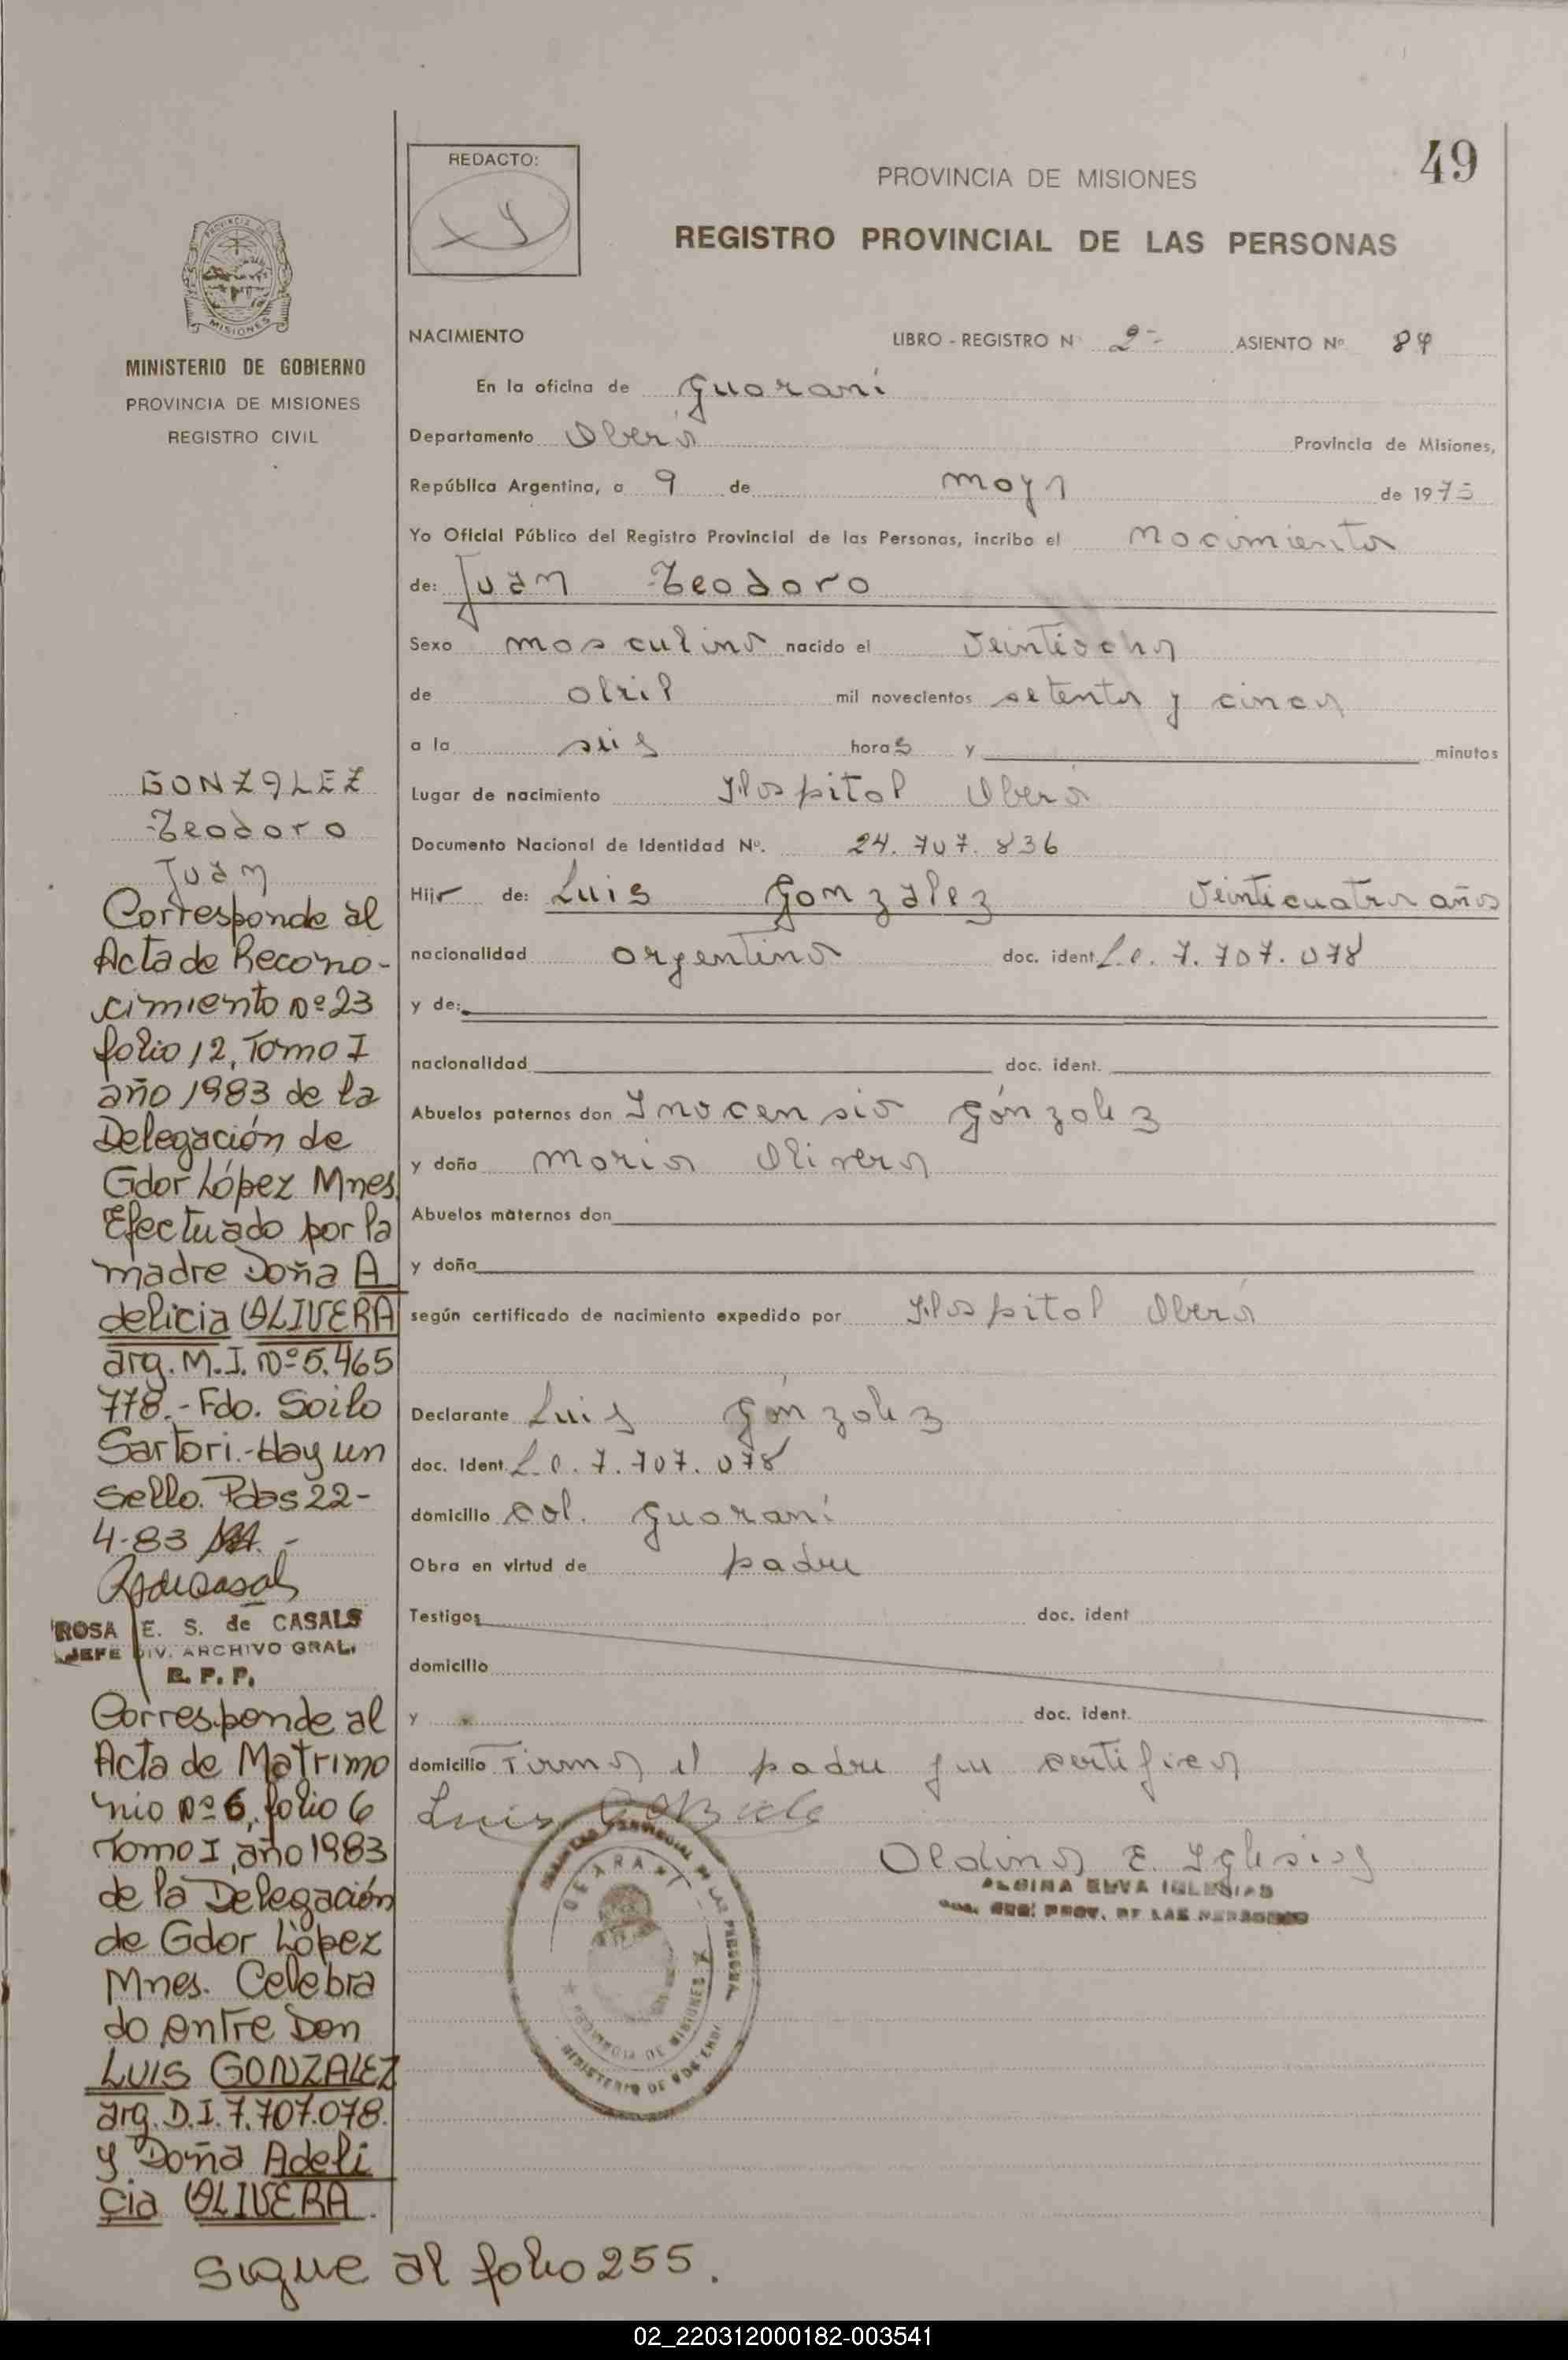 49
REDACTO:
PROVINCIA DE MISIONES
REGISTRO PROVINCIAL DE LAS PERSONAS
MISIONES
MINISTERIO DE GOBIERNO
PROVINCIA DE MISIONES
REGISTRO CIVIL
NACIMIENTO LIBRO - REGISTRO Nº 2- ASIENTO Nº 84
En la oficina de Guaraní
Departamento Oberá Provincia de Misiones,
República Argentina, a 9 de mayo de 1975
Yo Oficial Público del Registro Provincial de las Personas, incribo el nacimiento
de: Juan Teodoro
Sexo masculino nacido el veintiocho
de abril mil novecientos setenta y cinco
a la seis horas y minutos
Lugar de nacimiento Hospital Oberá
Documento Nacional de Identidad Nº. 24.707.836
Hijo de: Luis Gonzalez veinticuatro años
nacionalidad argentino doc. ident L.E. 7.707.078
y de:
nacionalidad doc. ident.
Abuelos paternos don Inocensio Gónzalez
y doña Maria Olivera
Abuelos maternos don
y doña
según certificado de nacimiento expedido por Hospital Oberá
Declarante Luis Gónzalez
doc. Ident. L.E. 7.707.078
domicilio Col. Guaraní
Obra en virtud de padre
Testigos doc. ident
domicilio
y doc. ident.
domicilio Firma el padre que certifica
Luis
Aldina E. Iglesias
ALDINA ELVA IGLESIAS
PROV. DE LAS PERSONAS
GUARANI
PROVINCIA DE MISIONES
MINISTERIO DE GOBIERNO
GONZALEZ
Teodoro
Juan
Corresponde al
Acta de Recono-
cimiento Nº 23
folio 12, Tomo I
año 1983 de la
Delegación de
Gdor López Mnes
Efectuado por la
madre Doña A
delicia OLIVERA
arg. M.I. Nº 5.465
778.- Fdo. Soilo
Sartori.- Hay un
sello. Pdas 22-
4-83
ROSA E. S. de CASALS
JEFE DIV. ARCHIVO GRAL.
R. P. P.
Corresponde al
Acta de Matrimo
nio Nº 6, folio 6
Tomo I, año 1983
de la Delegación
de Gdor López
Mnes. Celebra
do entre Don
LUIS GONZALEZ
arg. D.I. 7.707.078.
y Doña Adeli
cia OLIVERA.
Sigue al folio 255.
02_220312000182-003541